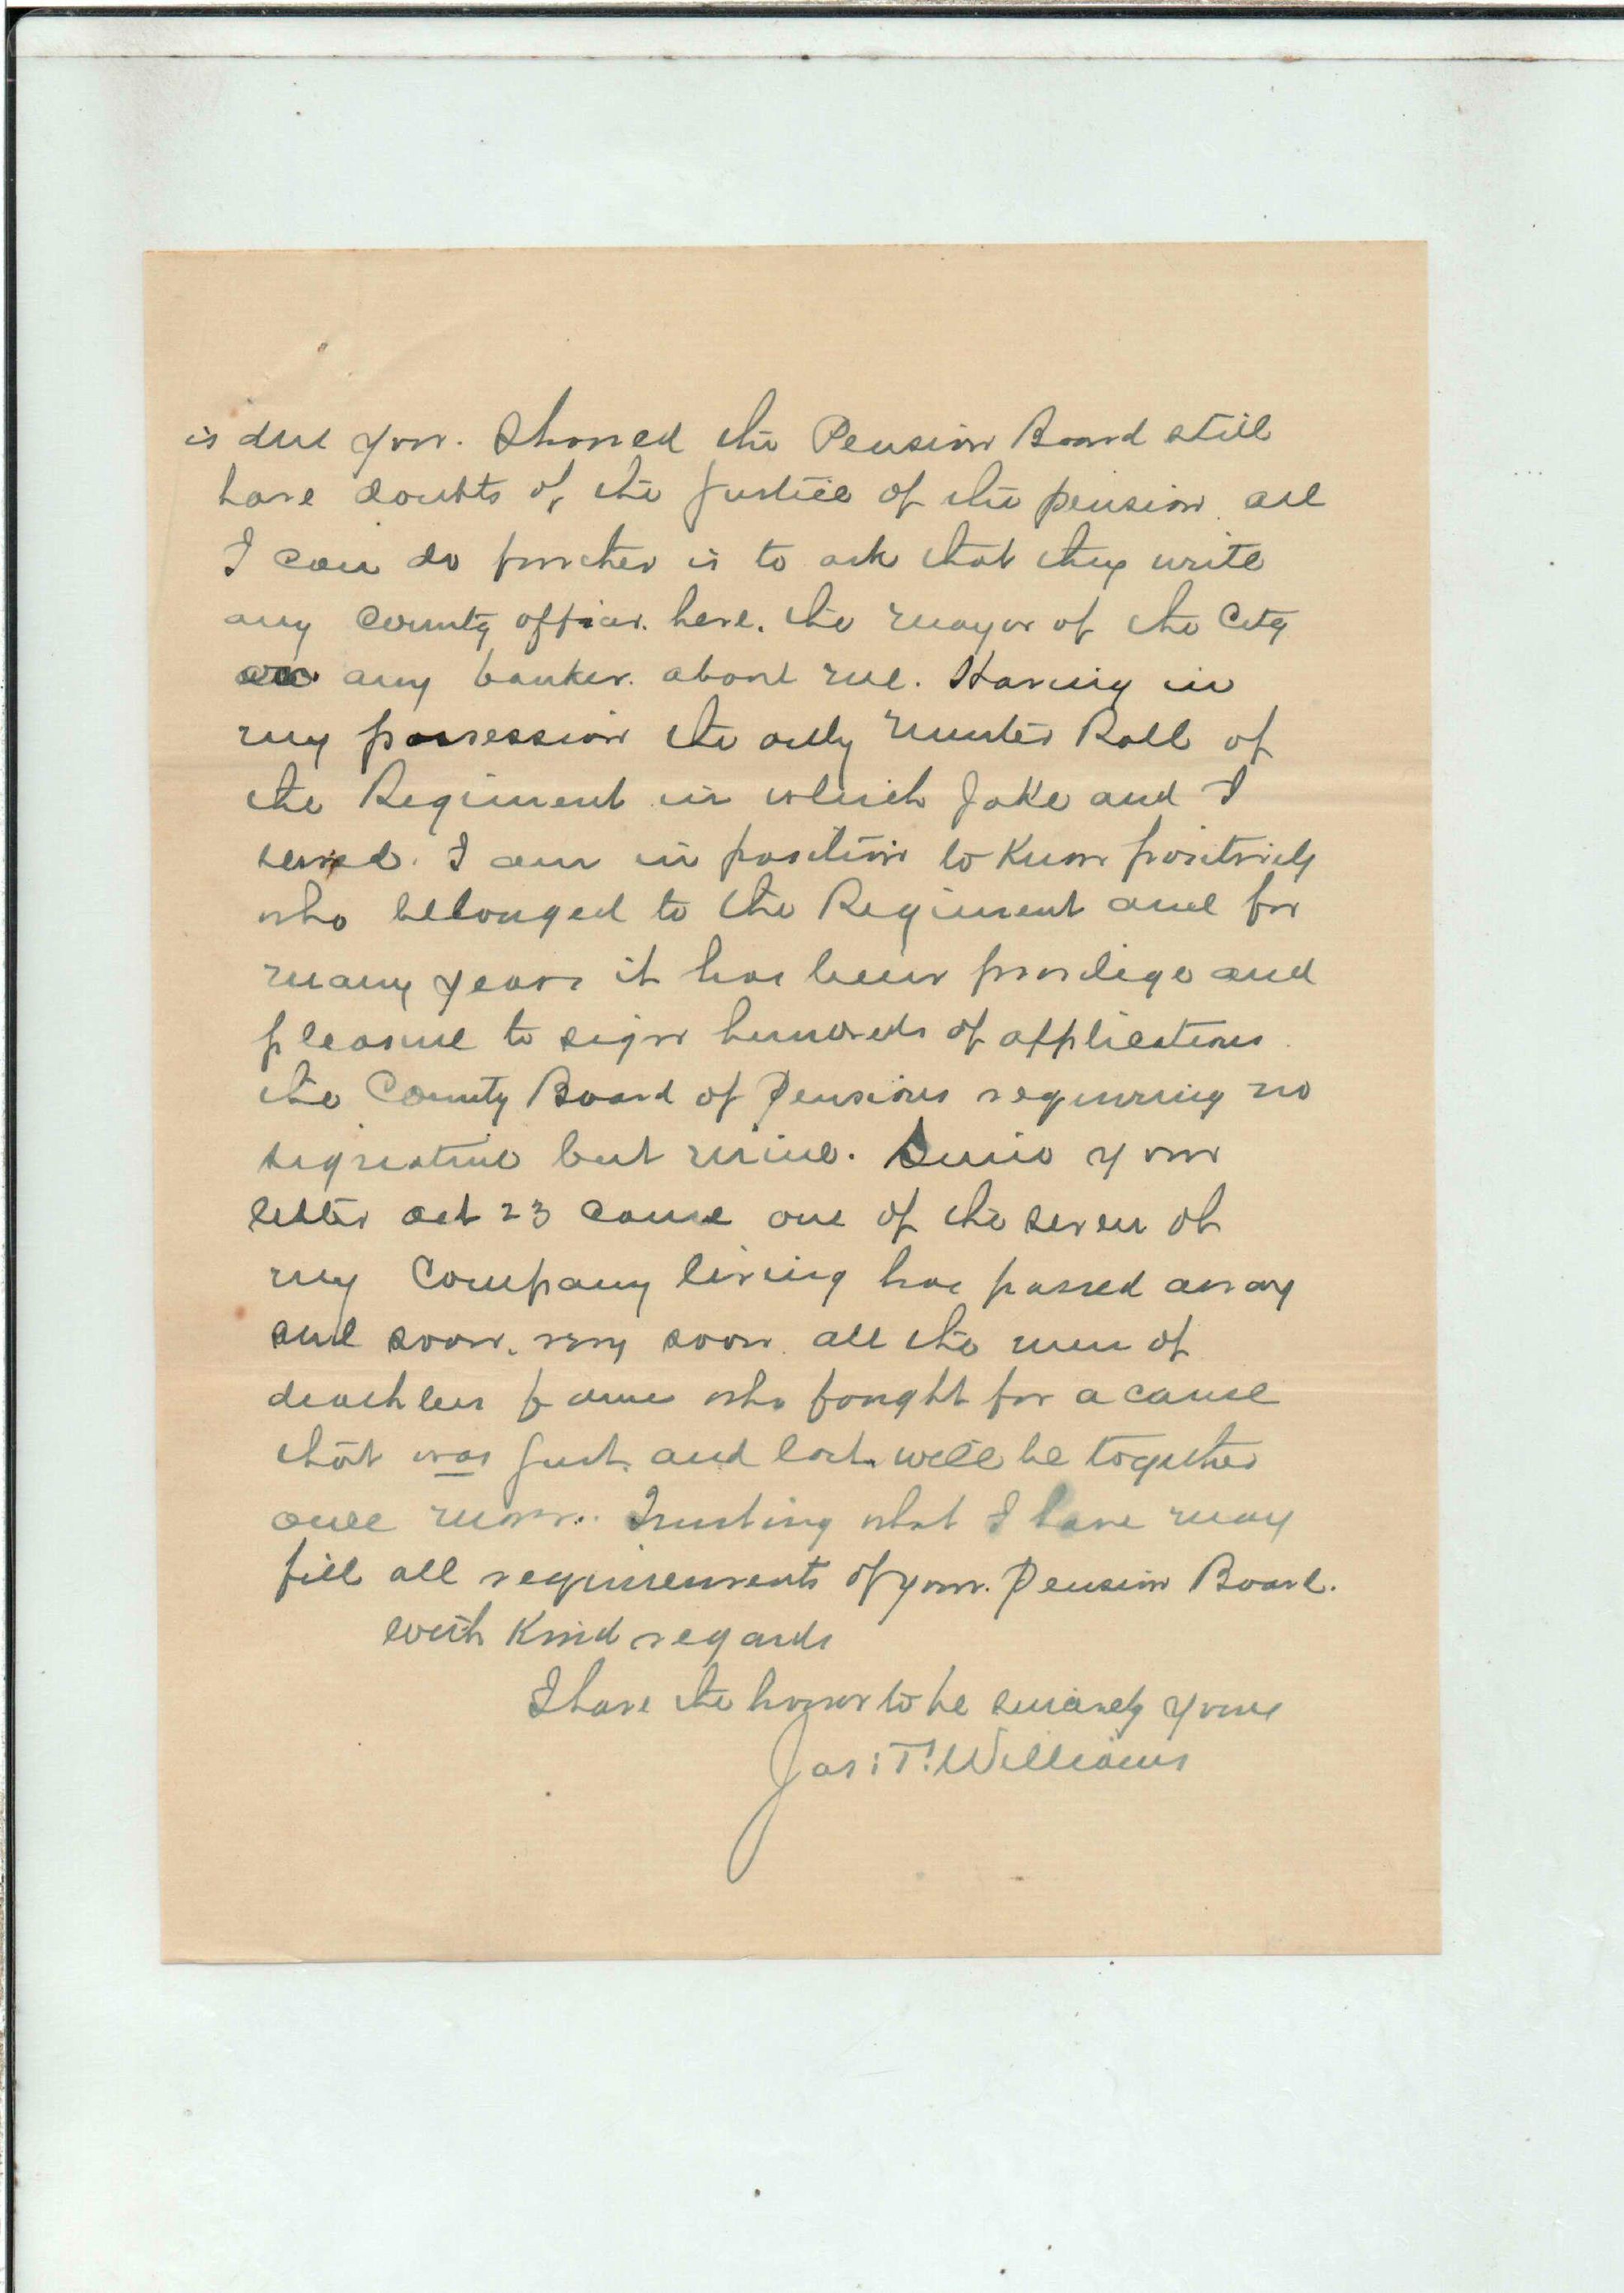 is due you. Should the Pension Board still
have doubts of the justice of the pension all
I can do further is to ask that they write
any County officer. here. the mayor of the City
or any banker. about me. Having in
my possession the only Muster Roll of
the Regiment in which Jake and I
served. I am in position to know positively
who belonged to the Regiment and for
many years it has been privilege and
pleasure to sign hundreds of applications.
the County Board of Pensions requiring no
signature but mine. Since your
letter Oct 23 came one of the seven of
my Company living has passed away
and soon, very soon all the men of
deathless fame who fought for a cause
that was just. and lost. will be together
once more. Trusting what I have may
fill all requirements of your. Pension Board.
with Kind regards
I have the honor to be sincerely yours
Jas: T. Williams